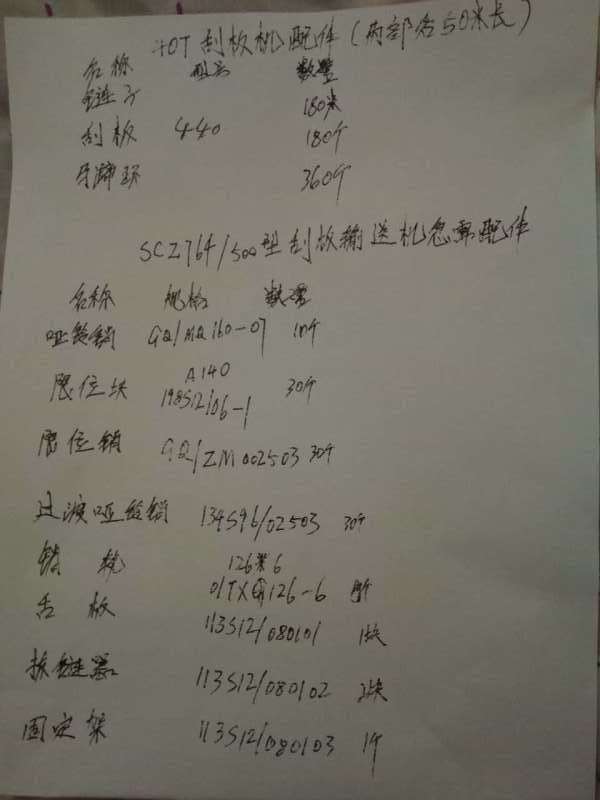 40T 刮板机配件(两部各50米长)
名称 型号 数量
链子 180米
刮板 440 180个
马蹄环 360个
SCZ764/500型刮板输送机急需配件
名称 规格 数量
哑铃销 GQ/MQ160-07 10个
限位块 A140 198S12/06-1 30个
限位销 GQ/ZM002503 30个
过渡哑铃销 134S96/02503 30个
126×6
01TXQ126-6
舌板 113S12/080101 1块
拆链器 113S12/080102 2块
固定架 113S12/080103 1个